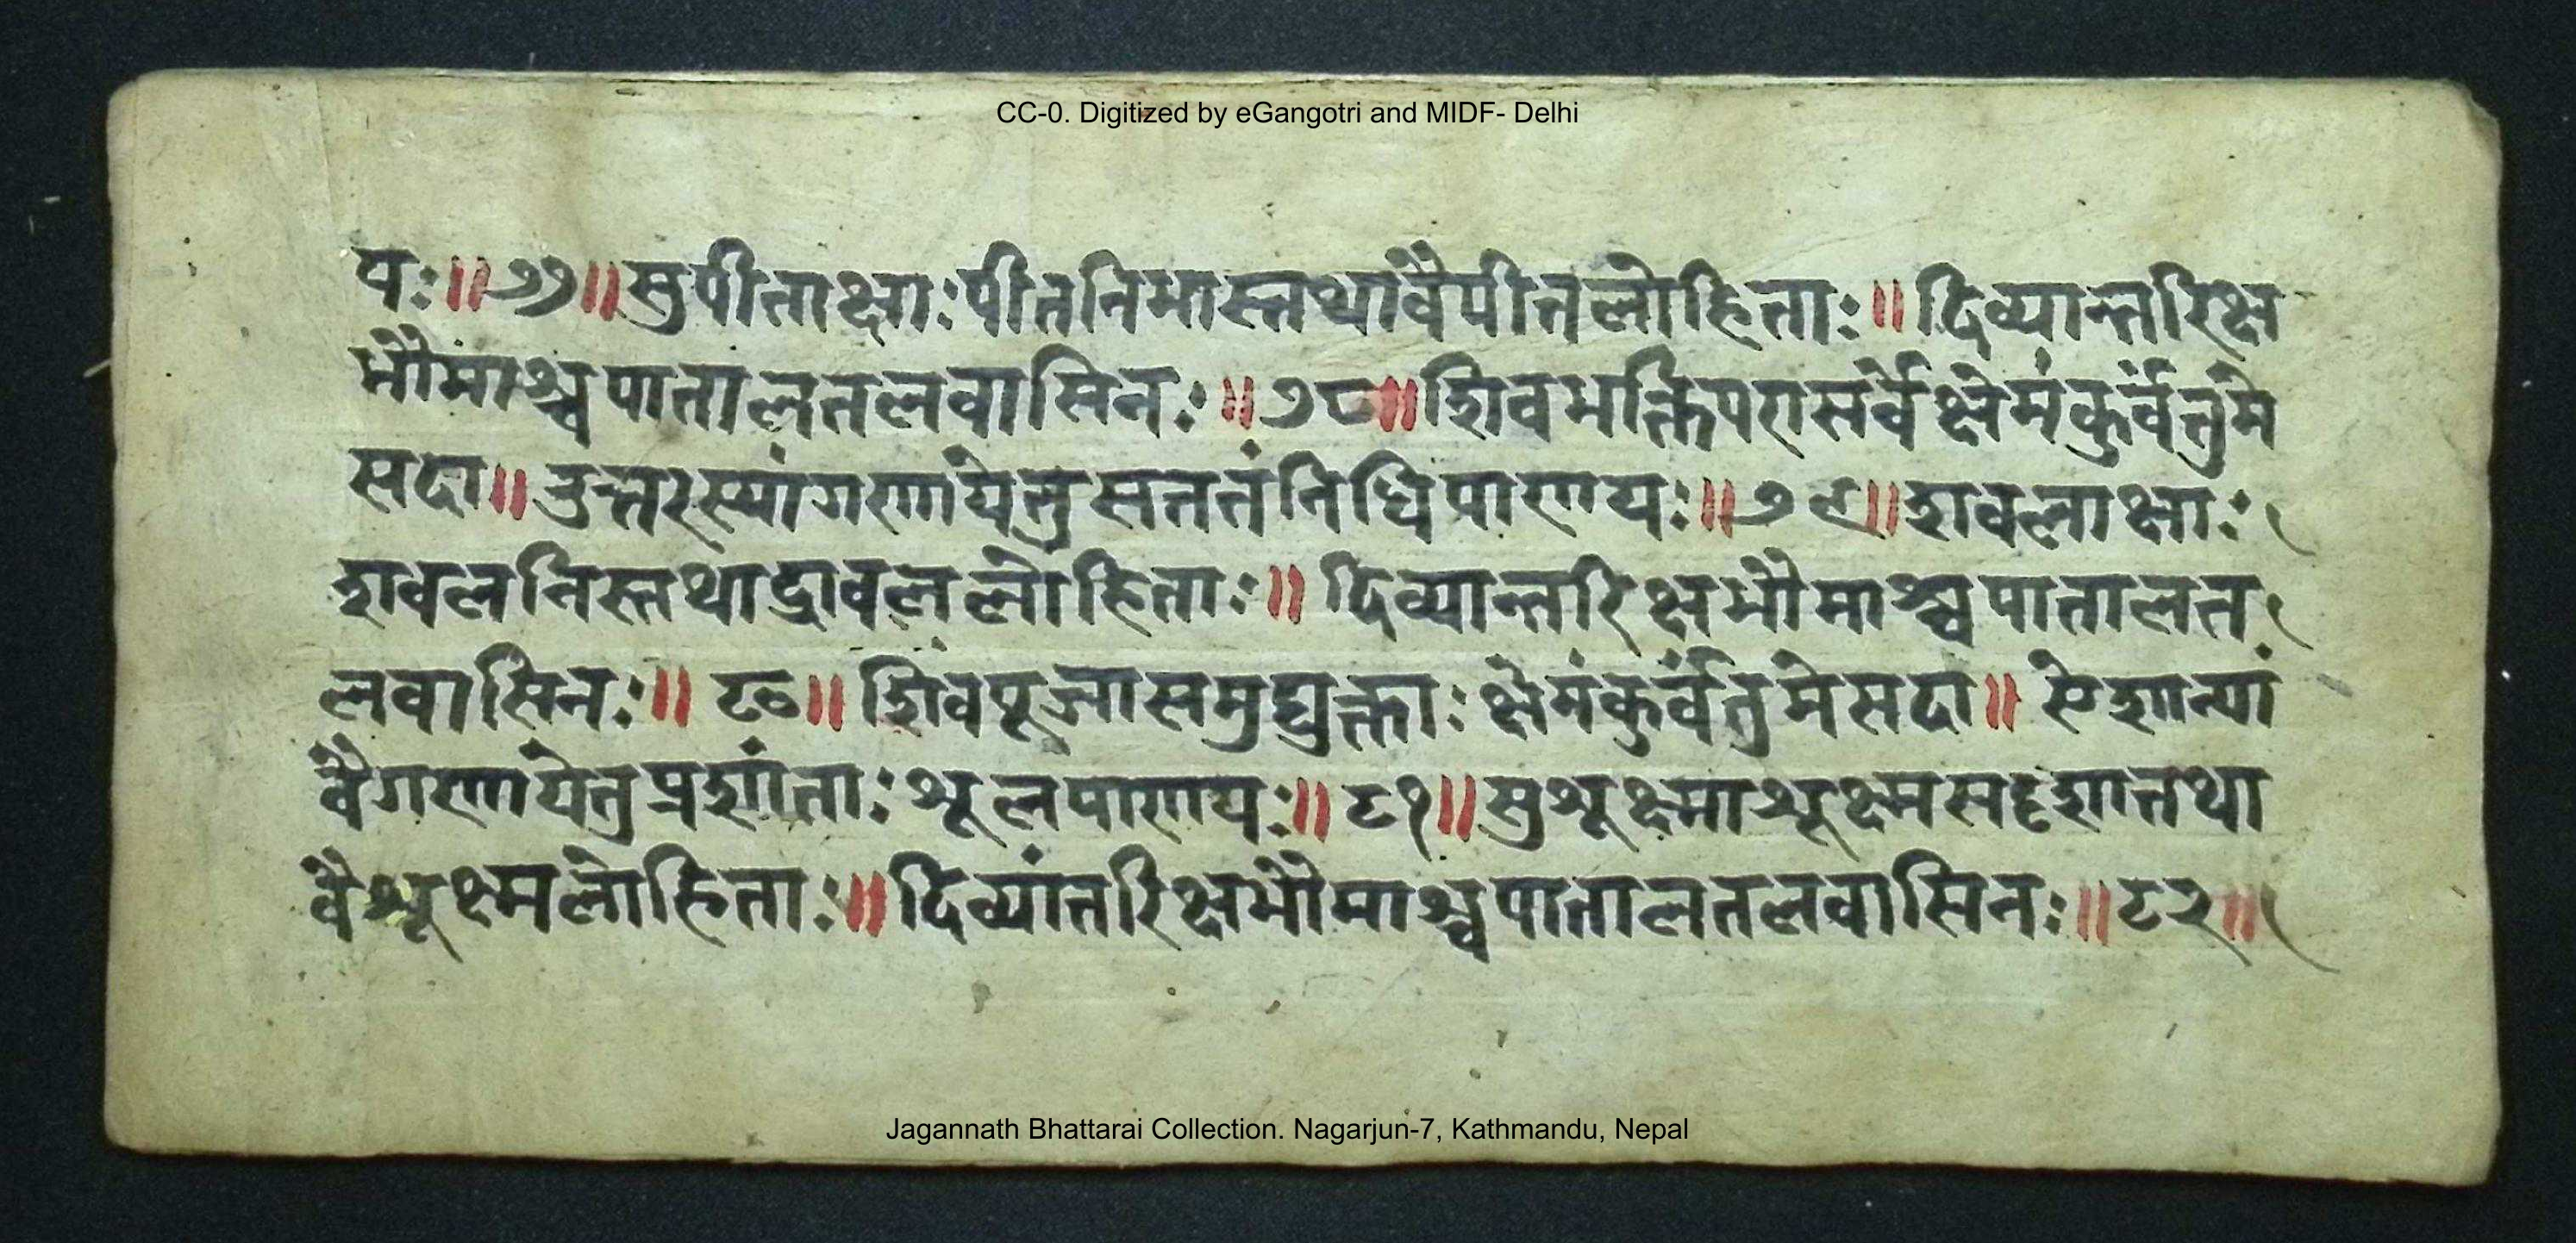 CC-0. Digitized by eGangotri and MIDF- Delhi
यः॥७७॥सुपीताक्षाःपीतनिभास्तथावैपीतलोहिताः॥दिव्यान्तरिक्ष
भौमाश्चपातालतलवासिनः॥७८॥शिवभक्तिपरासर्वेक्षेमंकुर्वंतुमे
सदा॥उत्तरस्यांगणायेतुसततंनिधिपाणयः॥७९॥शवलाक्षाः
शवलनिस्तथाशवललोहिताः॥दिव्यान्तरिक्षभौमाश्चपातालत
लवासिनः॥८०॥शिवपूजासमुद्युक्ताःक्षेमंकुर्वंतुमेसदा॥ऐशान्यां
वैगणायेतुप्रशांताःशूलपाणयः॥८१॥सुशूक्ष्माशूक्ष्मसदृशातथा
वैशूक्ष्मलोहिताः॥दिव्यांतरिक्षभौमाश्चपातालतलवासिनः॥८२॥
Jagannath Bhattarai Collection. Nagarjun-7, Kathmandu, Nepal